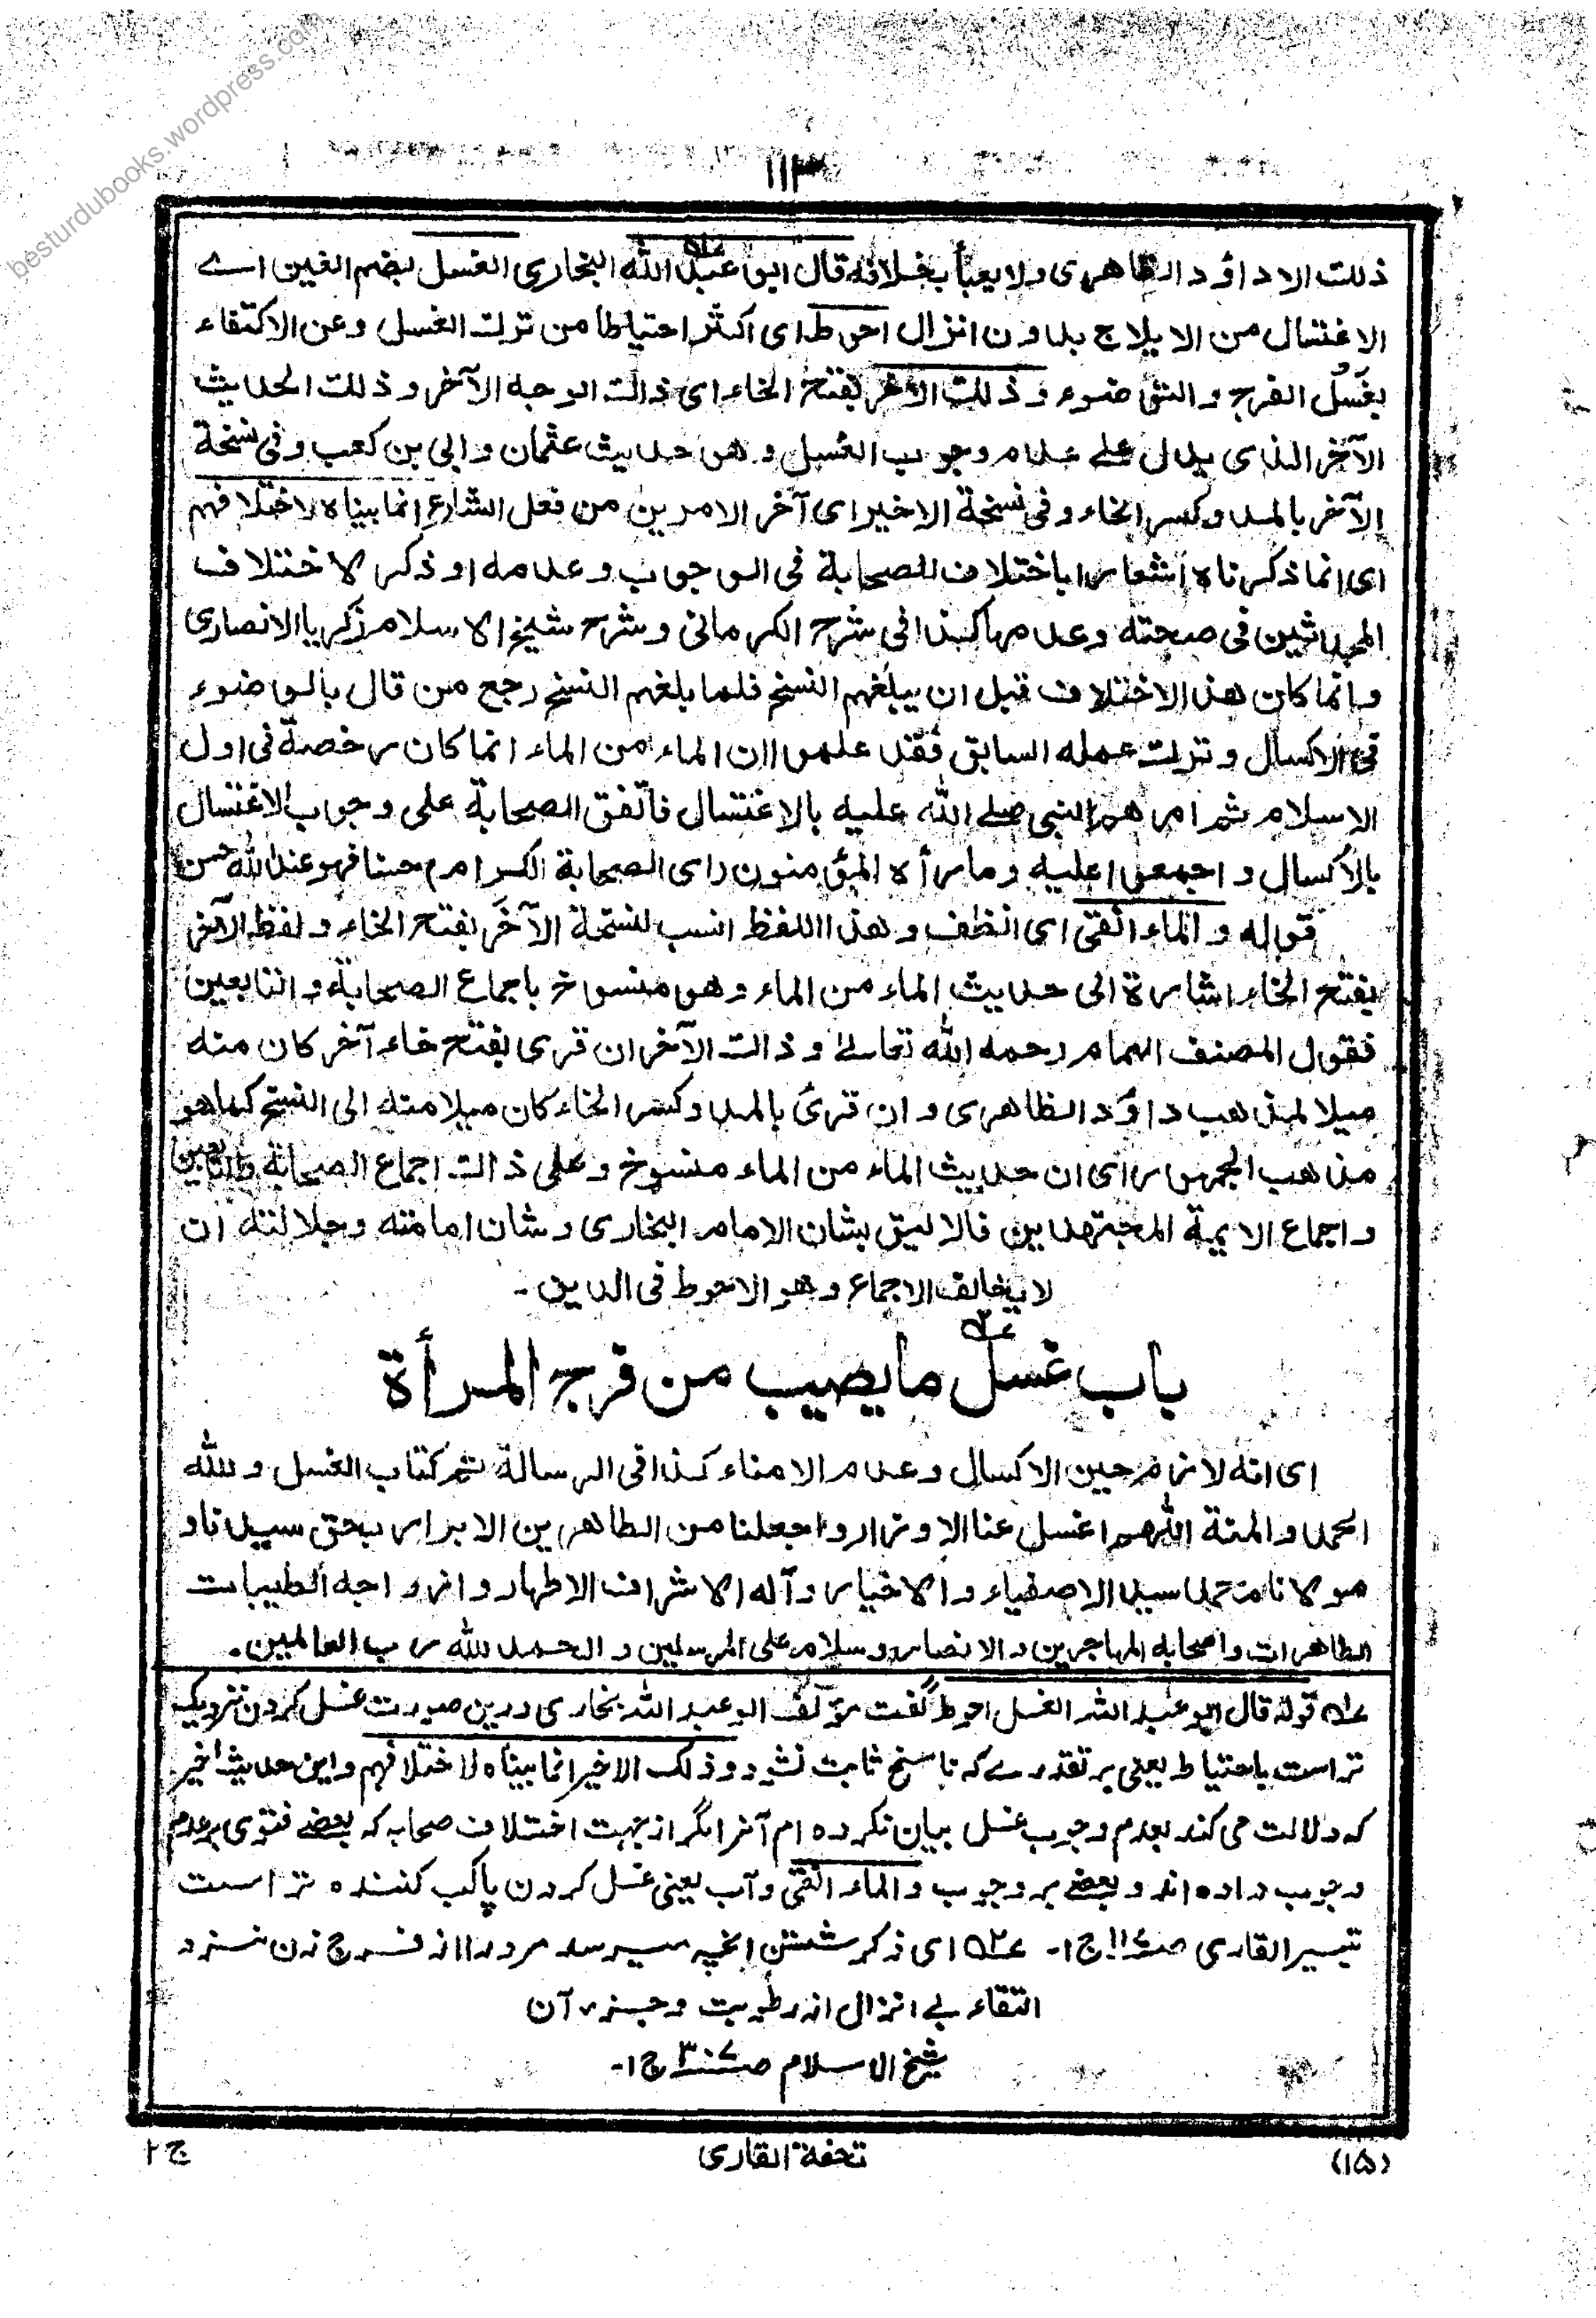 besturdubooks.wordpress.com
۱۱۳
ذلك الا داؤد الظاهرى ولا يعبأ بخلافه قال ابو عبد الله البخارى الغسل بضم الغين اے
الاغتسال من الايلاج بدون انزال احوط اى اكثر احتياطا من ترك الغسل وعن الاكتفاء
بغسل الفرج والتوضوء وذلك الآخر بفتح الخاء اى ذالك الوجه الآخر وذلك الحديث
الآخر الذى يدل علے عدم وجوب الغسل وهو حديث عثمان وابى بن كعب وفى نسخة
الآخر بالمد وكسر الخاء وفى نسخة الاخير اى آخر الامرين من فعل الشارع انما بيناه لاختلافهم
اى انما ذكرناه اشعارا باختلاف الصحابة فى الوجوب وعدمه او ذكر لاختلاف
المحدثين فى صحته وعدمها كذا فى شرح الكرمانى وشرح شيخ الاسلام زكريا الانصارى
وانما كان هذا الاختلاف قبل ان يبلغهم النسخ فلما بلغهم النسخ رجع من قال بالوضوء
فى الاكسال وترك عمله السابق فقد علموا ان الماء من الماء انما كان رخصة فى اول
الاسلام ثم امرهم النبى صلے الله عليه بالاغتسال فاتفق الصحابة على وجوب الاغتسال
بالاكسال واجمعوا عليه وما رأه المؤمنون اى الصحابة الكرام حسنا فهو عند الله حسن
قوله والماء انقى اى انظف وهذا اللفظ انسب لنسخة الآخَر بفتح الخاء ولفظ الآخر
بفتح الخاء اشارة الى حديث الماء من الماء وهو منسوخ باجماع الصحابة والتابعين
فقول المصنف الهمام رحمه الله تعالےٰ وذالك الآخر ان قرى بفتح خاء آخر كان منه
ميلا لمذهب داؤد الظاهرى وان قرئ بالمد وكسر الخاء كان ميلا منه الى النسخ كما هو
مذهب الجمهور اى ان حديث الماء من الماء منسوخ وعلى ذالك اجماع الصحابة والتابعين
واجماع الايمة المجتهدين فالاليق بشان الامام البخارى وشان امامته وجلالته ان
لا يخالف الاجماع وهو الاحوط فى الدين ـ
باب غسل ما يصيب من فرج المرأة
اى انه لازم حين الاكسال وعدم الامناء كذا فى الرسالة تم كتاب الغسل ولله
الحمد والمنة اللهم اغسل عنا الاوزار واجعلنا من الطاهرين الابرار بحق سيدنا و
مولانا محمد سيد الاصفياء والاخيار وآله الاشراف الاطهار وازواجه الطيبات
الطاهرات واصحابه المهاجرين والانصار وسلام على المرسلين والحمد لله رب العالمين ۔
عـ۱ـه قوله قال ابو عبد الله الغسل احوط گفت مؤلف ابو عبد الله بخاری درین صورت غسل کردن نزدیک
تر است باحتیاط یعنی بر تقدیرے که ناسخ ثابت نشود وذلك الاخير انما بيناه لاختلافهم واین حدیث اخیر
که دلالت می کند بعدم وجوب غسل بیان نکرده ام آنرا مگر از جهت اختلاف صحابه که بعضے فتوی بر عدم
وجوب داده اند و بعضے بر وجوب والماء انقى وآب یعنی غسل کردن پاک کننده تر است
تیسیر القاری صـ ج۱ـ عـ۲ـه ای ذکر شستن انچه میرسد مرد را از فرج زن نزد
التقاء بے انزال از رطوبت وجز آن
شیخ الاسلام صـ۳۰۷ ج۱ـ
(۱۵)
تحفة القارى
ج ۲